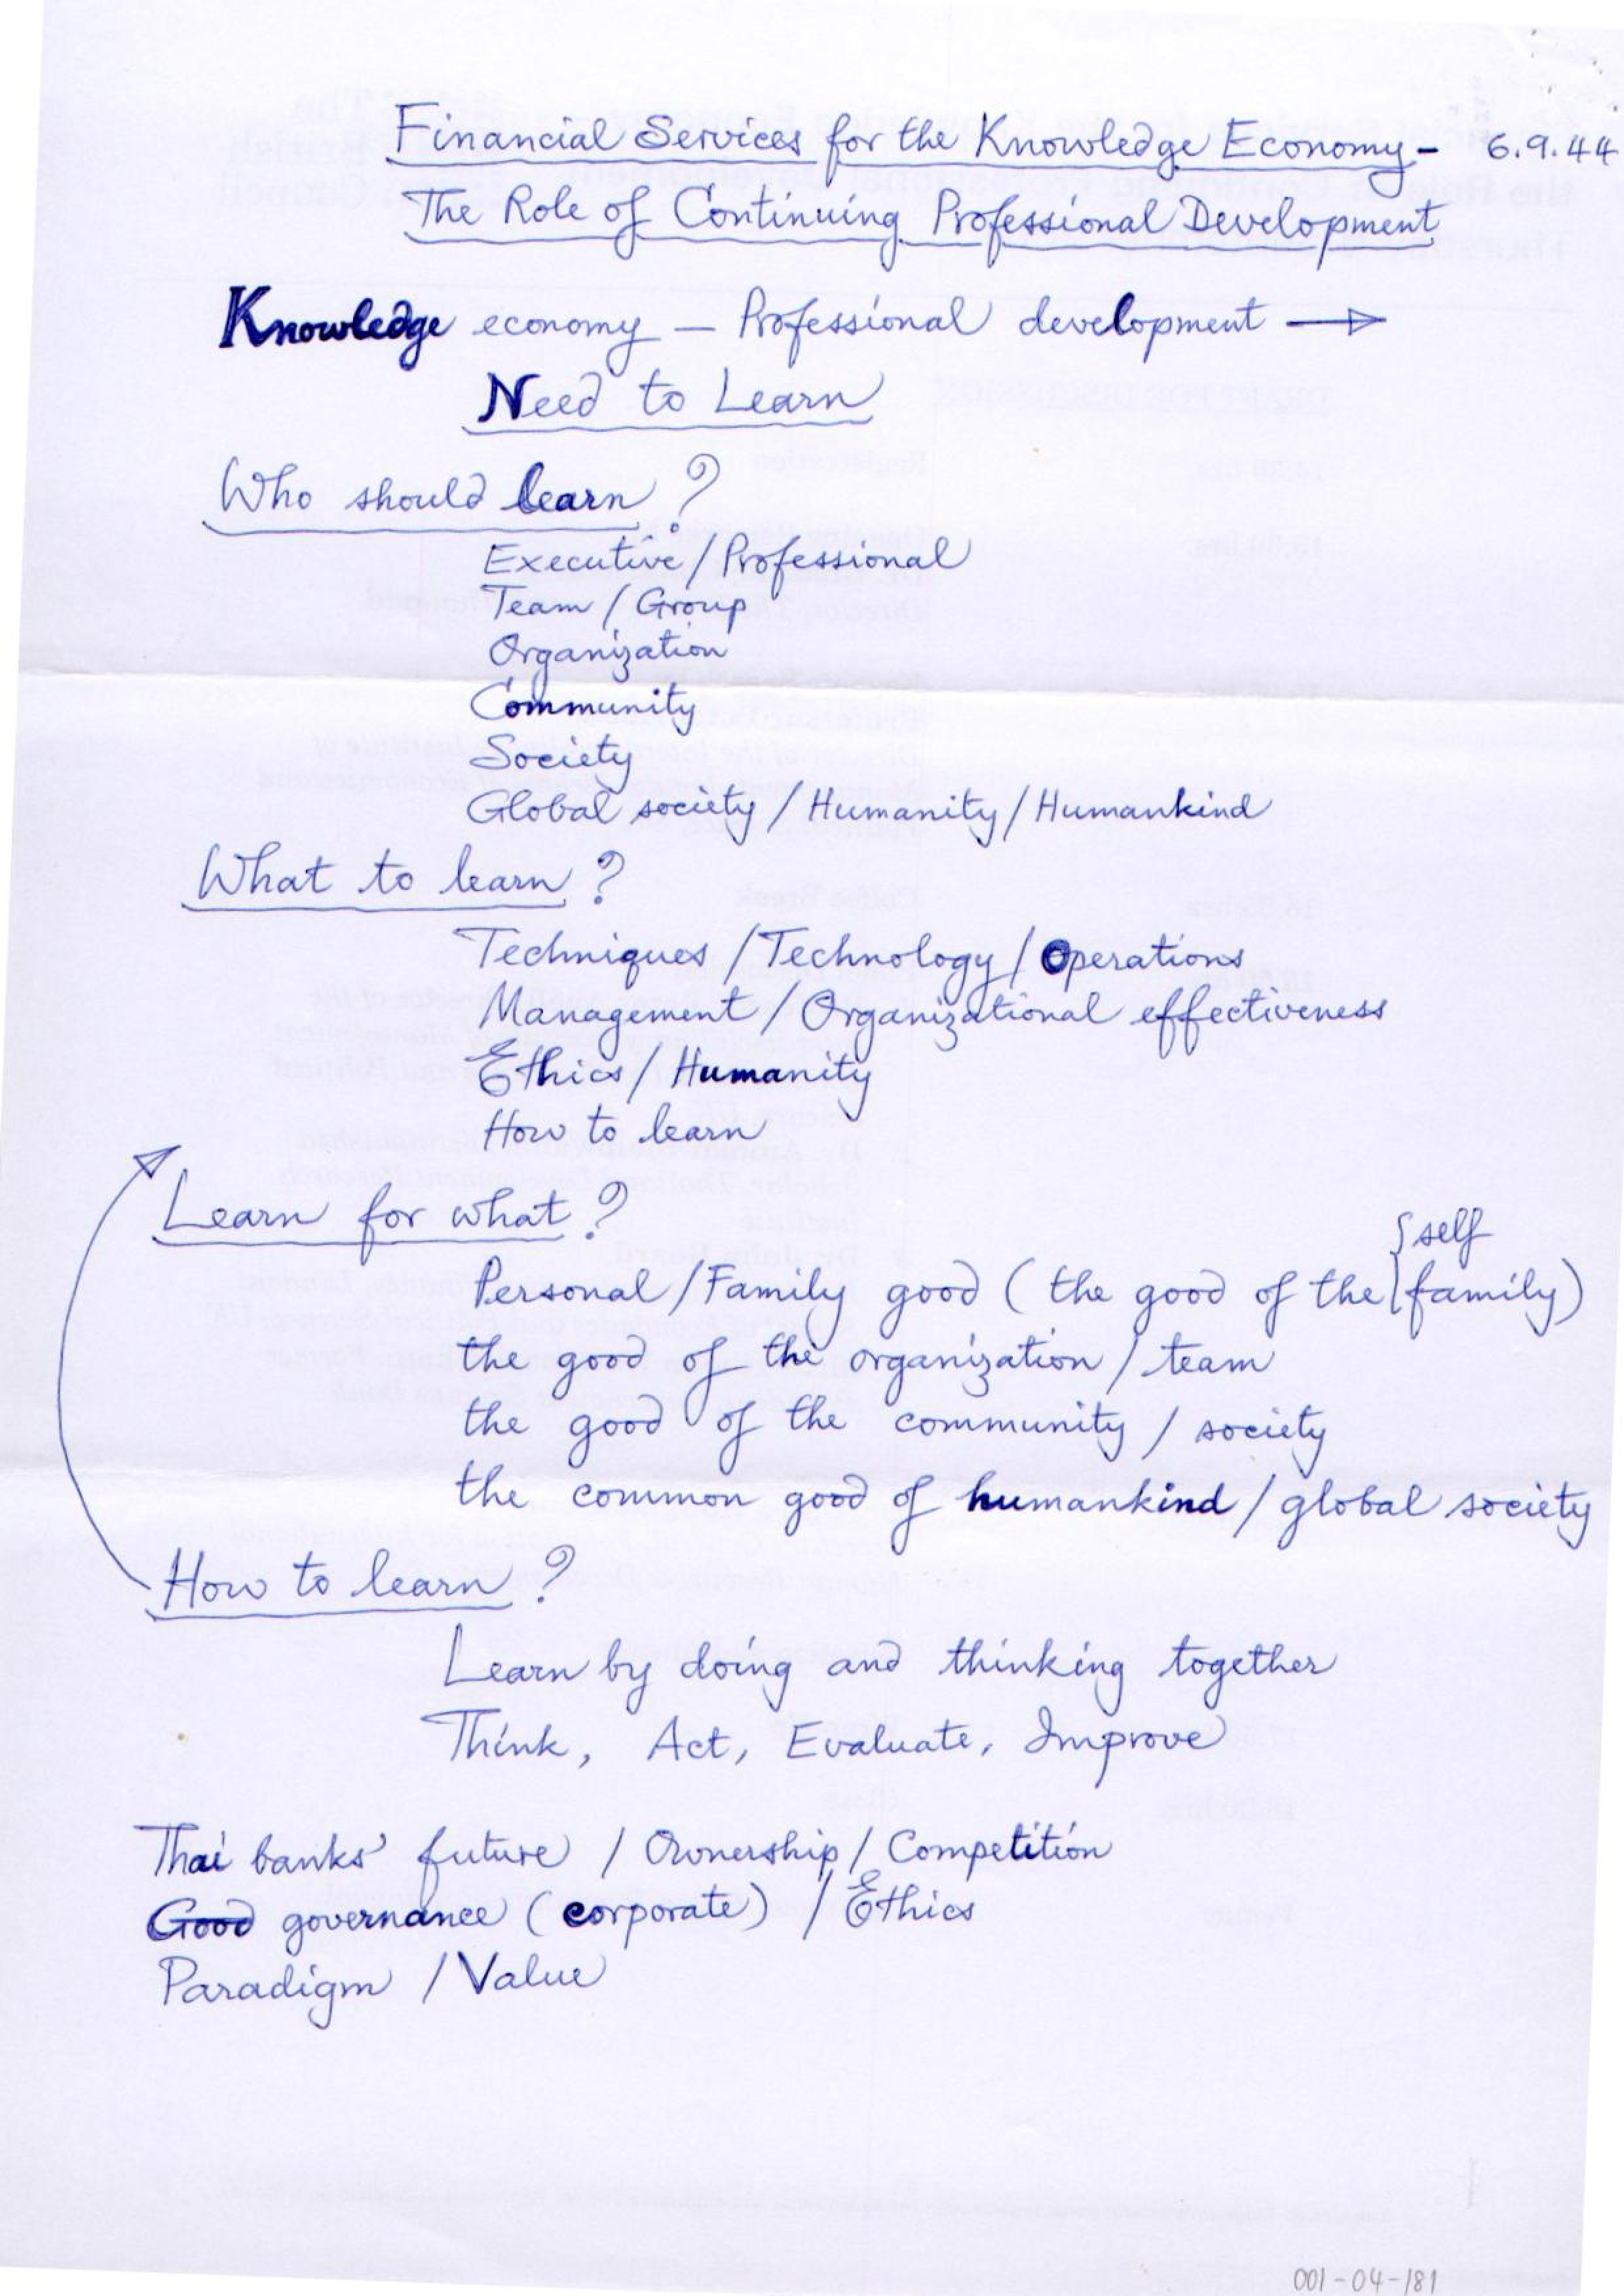 Financial Services for the Knowledge Economy - 6.9.44
The Role of Continuing Professional Development
Knowledge economy — Professional development →
Need to Learn
Who should learn?
Executive / Professional
Team / Group
Organization
Community
Society
Global society / Humanity / Humankind
What to learn?
Techniques / Technology / Operations
Management / Organizational effectiveness
Ethics / Humanity
How to learn
Learn for what?
Personal / Family good (the good of the { self
family)
the good of the organization / team
the good of the community / society
the common good of humankind / global society
How to learn?
Learn by doing and thinking together
Think, Act, Evaluate, Improve
Thai banks' future / Ownership / Competition
Good governance (corporate) / Ethics
Paradigm / Value
001-04-181